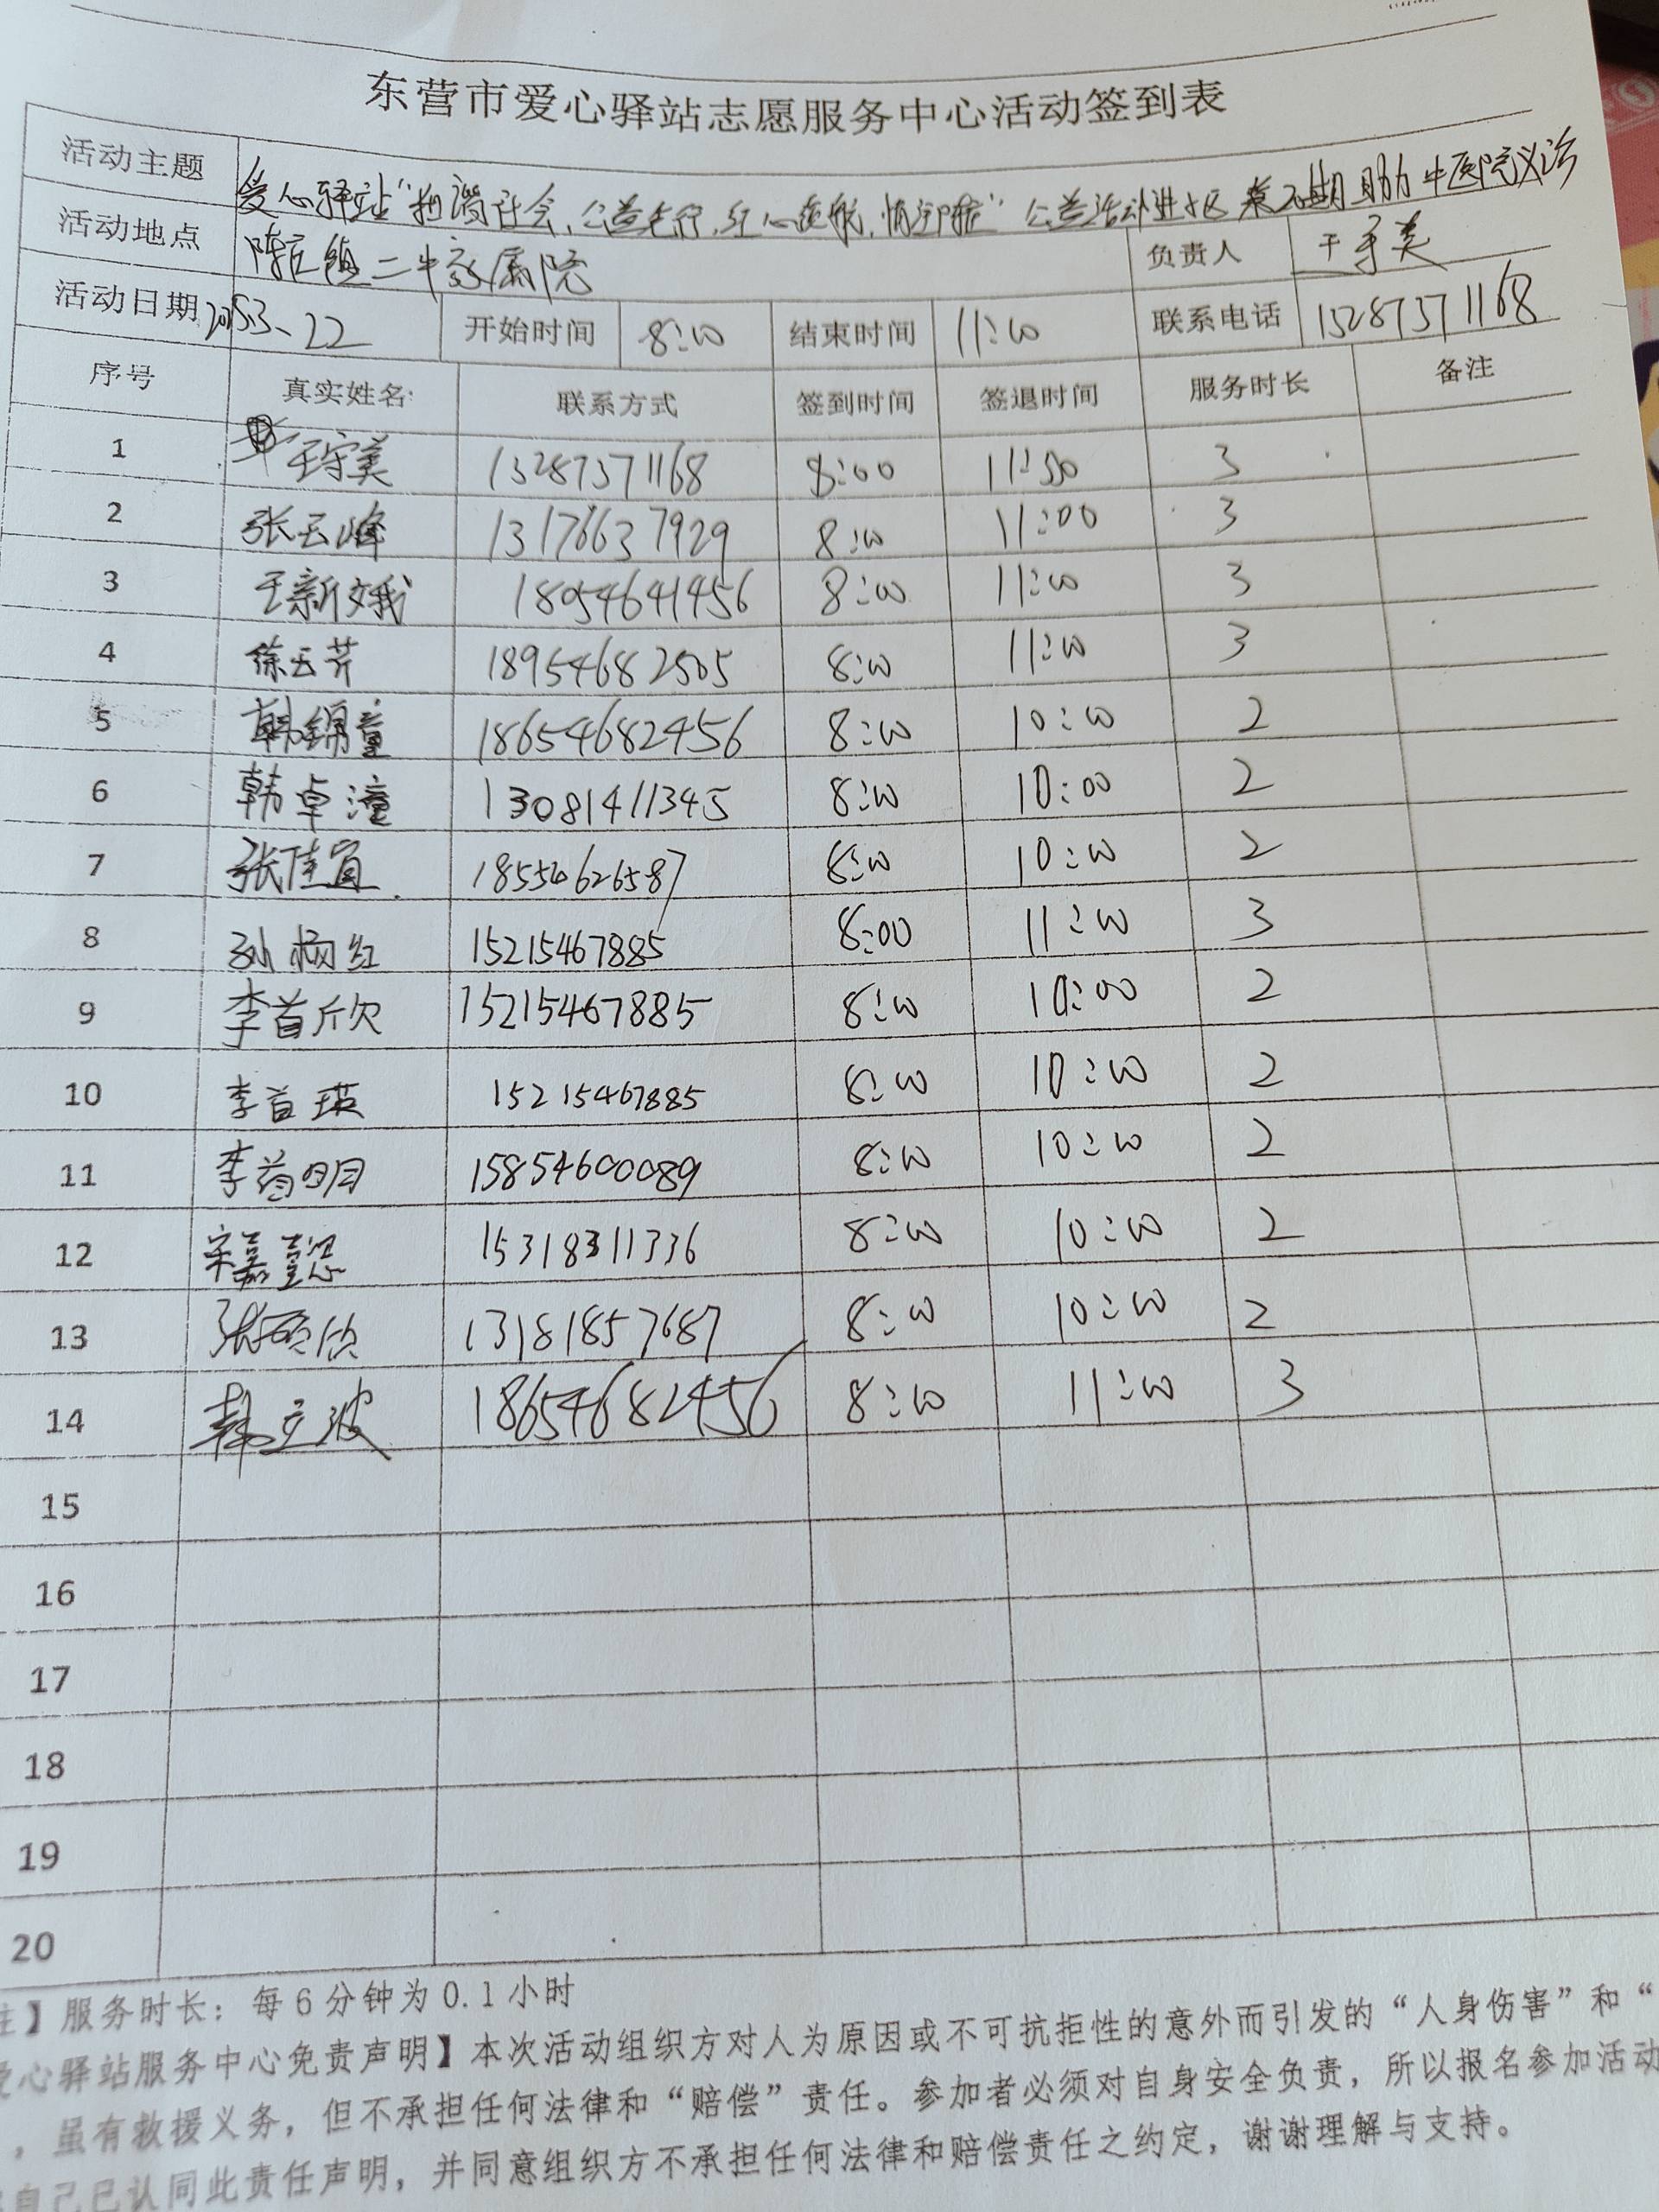 东营市爱心驿站志愿服务中心活动签到表
活动主题 爱心驿站“和谐社会,公益先行,红心护航,情注” 公益活动进社区 期助力中医院义诊
活动地点 陈庄镇二中家属院 负责人 王守美
活动日期 2025.3、22 开始时间 8:00 结束时间 11:00 联系电话 15287371168
序号 真实姓名: 联系方式 签到时间 签退时间 服务时长 备注
1 王守美 13287371168 8:00 11:30 3
2 张云峰 13176637929 8:00 11:00 3
3 王新娥 18954641456 8:00 11:00 3
4 徐玉芹 18954682505 8:00 11:00 3
5 韩锦童 18654682456 8:00 10:00 2
6 韩卓潼 13081411345 8:00 10:00 2
7 张佳宜 18554626587 8:00 10:00 2
8 孙树红 15215467885 8:00 11:00 3
9 李首欣 15215467885 8:00 10:00 2
10 李首瑛 15215467885 8:00 10:00 2
11 李首明 15854600089 8:00 10:00 2
12 宋嘉懿 15318311336 8:00 10:00 2
13 张硕欣 13181857687 8:00 10:00 2
14 韩立波 18654682456 8:00 11:00 3
15
16
17
18
19
20
注】服务时长：每6分钟为0.1小时
爱心驿站服务中心免责声明】本次活动组织方对人为原因或不可抗拒性的意外而引发的“人身伤害”和“
，虽有救援义务，但不承担任何法律和“赔偿”责任。参加者必须对自身安全负责，所以报名参加活动
自己已认同此责任声明，并同意组织方不承担任何法律和赔偿责任之约定，谢谢理解与支持。